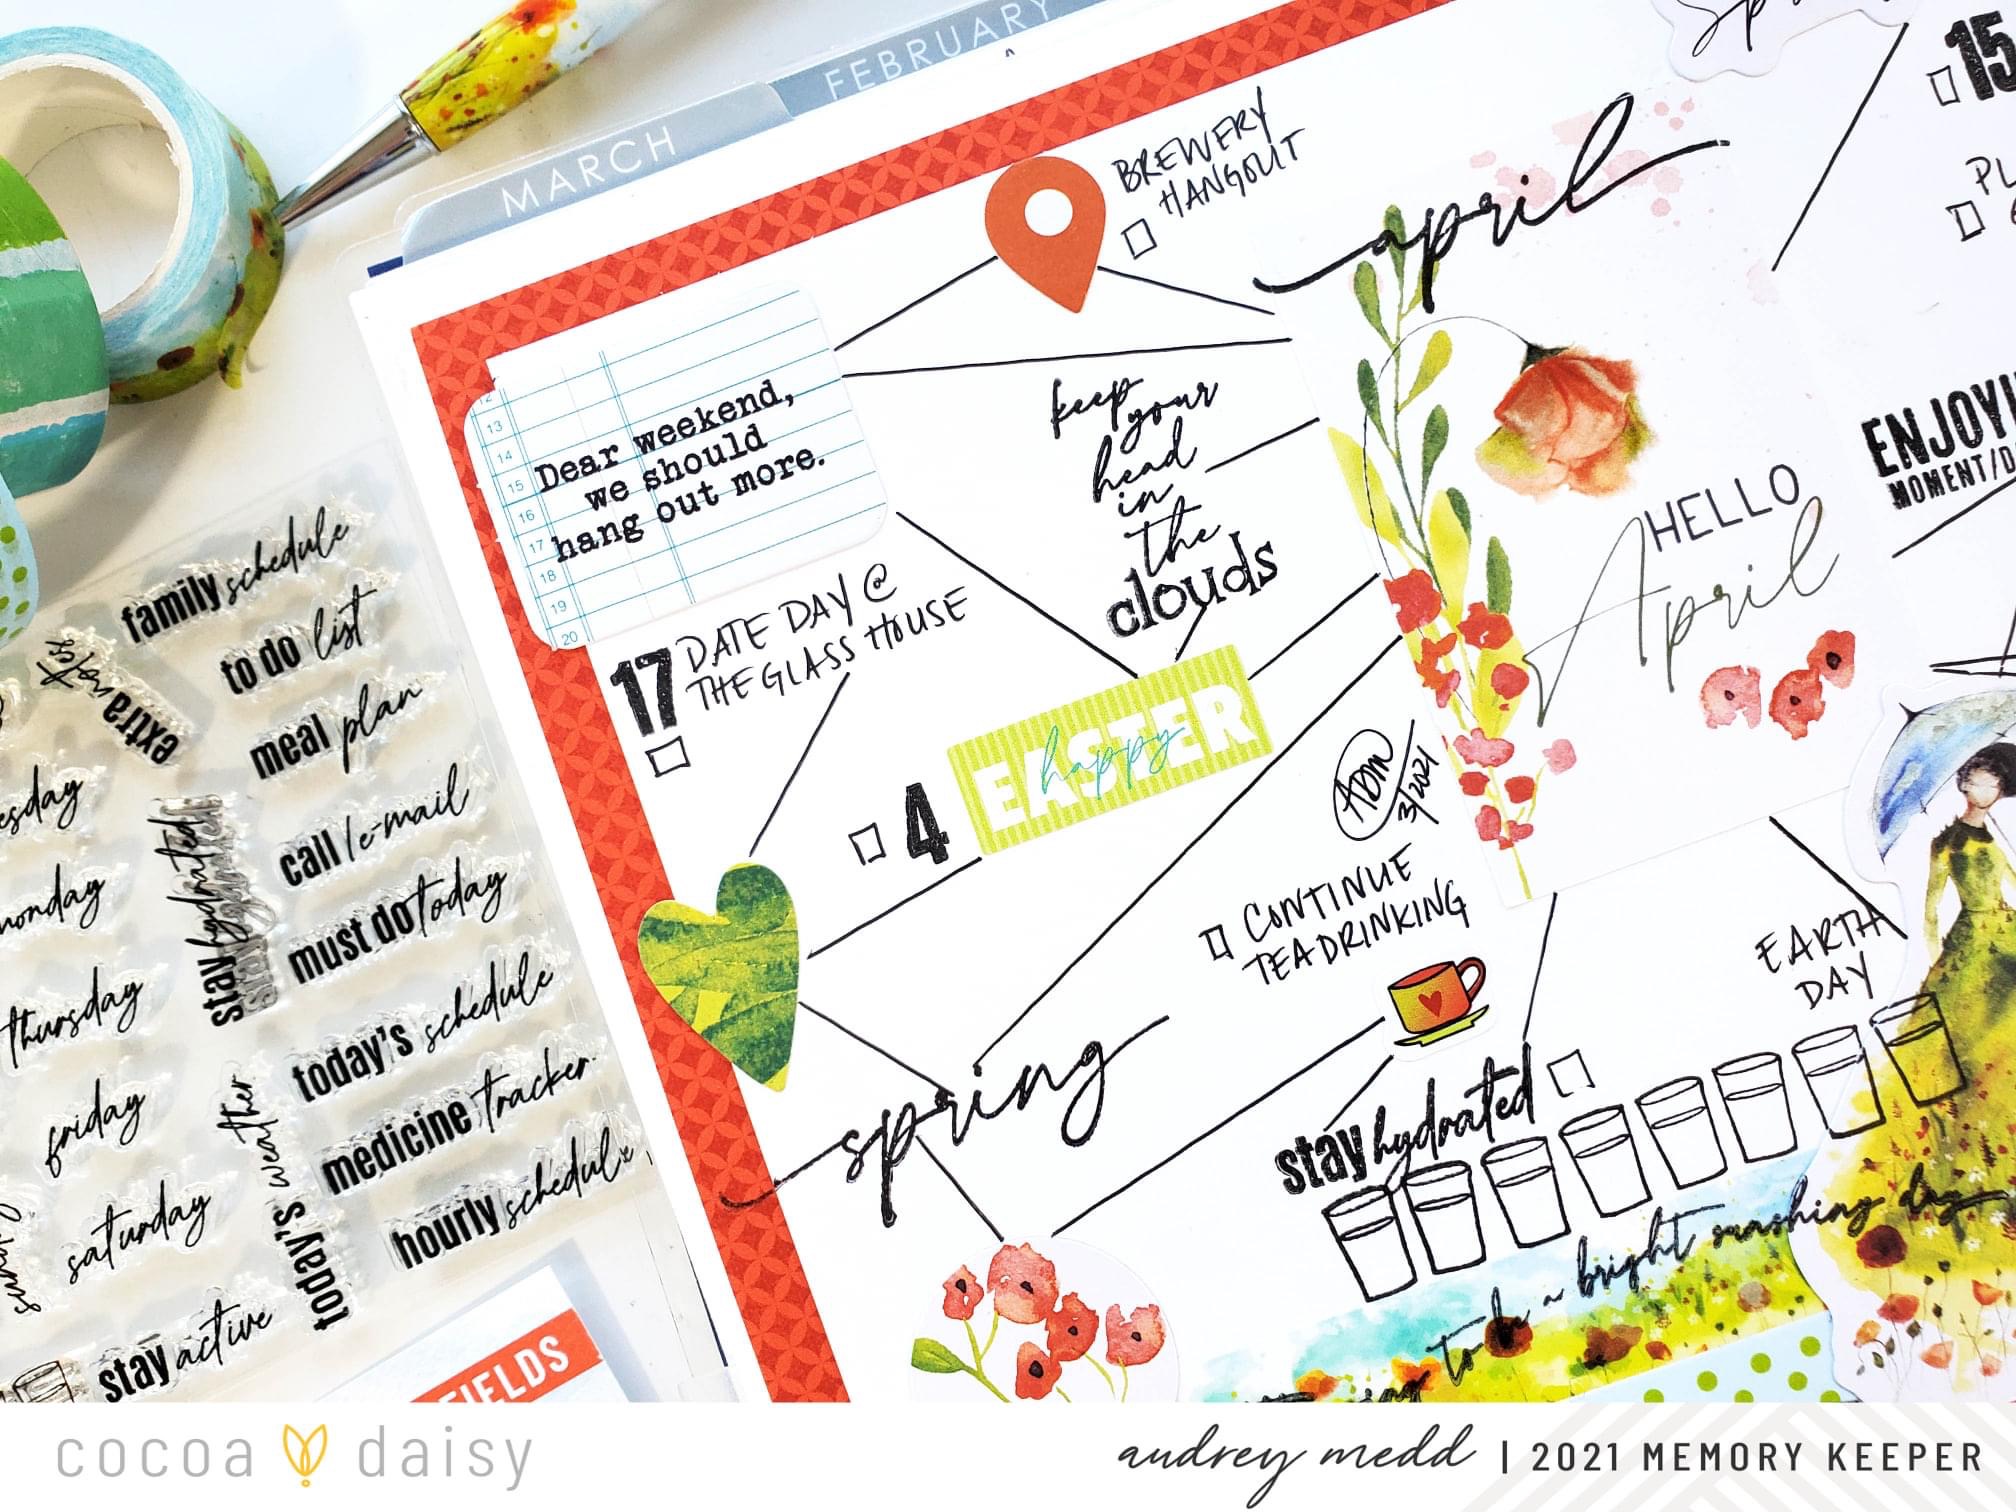 FEBRUARY
MARCH
BREWERY
HANGOUT
april
15
Dear weekend,
we should
hang out more.
12
13
14
15
16
17
18
19
20
keep
your
head
in
the
clouds
HELLO
April
MOMENT/D
17
DATE DAY @
THE GLASS HOUSE
4
happy
EASTER
ADM
3/2021
CONTINUE
TEA DRINKING
EARTH
DAY
spring
stay hydrated
to be a bright sunshiny day
family schedule
to do list
extra
meal plan
call/e-mail
must do today
today's schedule
medicine tracker
hourly schedule
stay hydrated
today's weather
monday
thursday
friday
saturday
stay active
FIELDS
cocoa daisy
audrey medd | 2021 MEMORY KEEPER